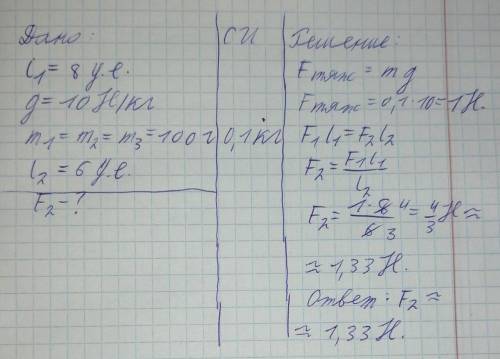 Дано:
l1 = 8 у.е.
g = 10 Н/кг
m1 = m2 = m3 = 100 г
l2 = 6 у.е.
F2 - ?
СИ
0,1 кг
Решение:
Fтяж = mg
Fтяж = 0,1·10 = 1Н.
F1l1 = F2l2
F2 = F1l1/l2
F2 = 1·8 4/6 3 = 4/3 Н ≈
≈ 1,33 Н.
Ответ: F2 ≈
≈ 1,33 Н.